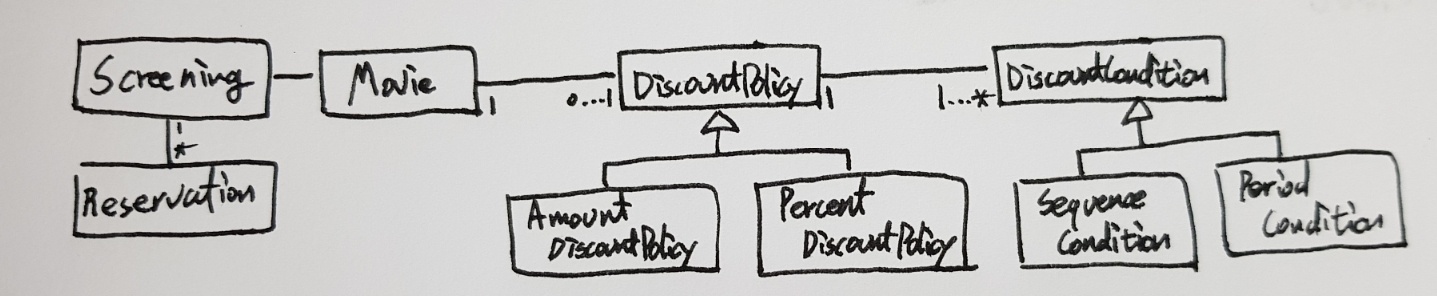 Screening
Movie
1
0...1
DiscountPolicy
1
1...*
DiscountCondition
1
*
Reservation
Amount
DiscountPolicy
Percent
DiscountPolicy
Sequence
Condition
Period
Condition